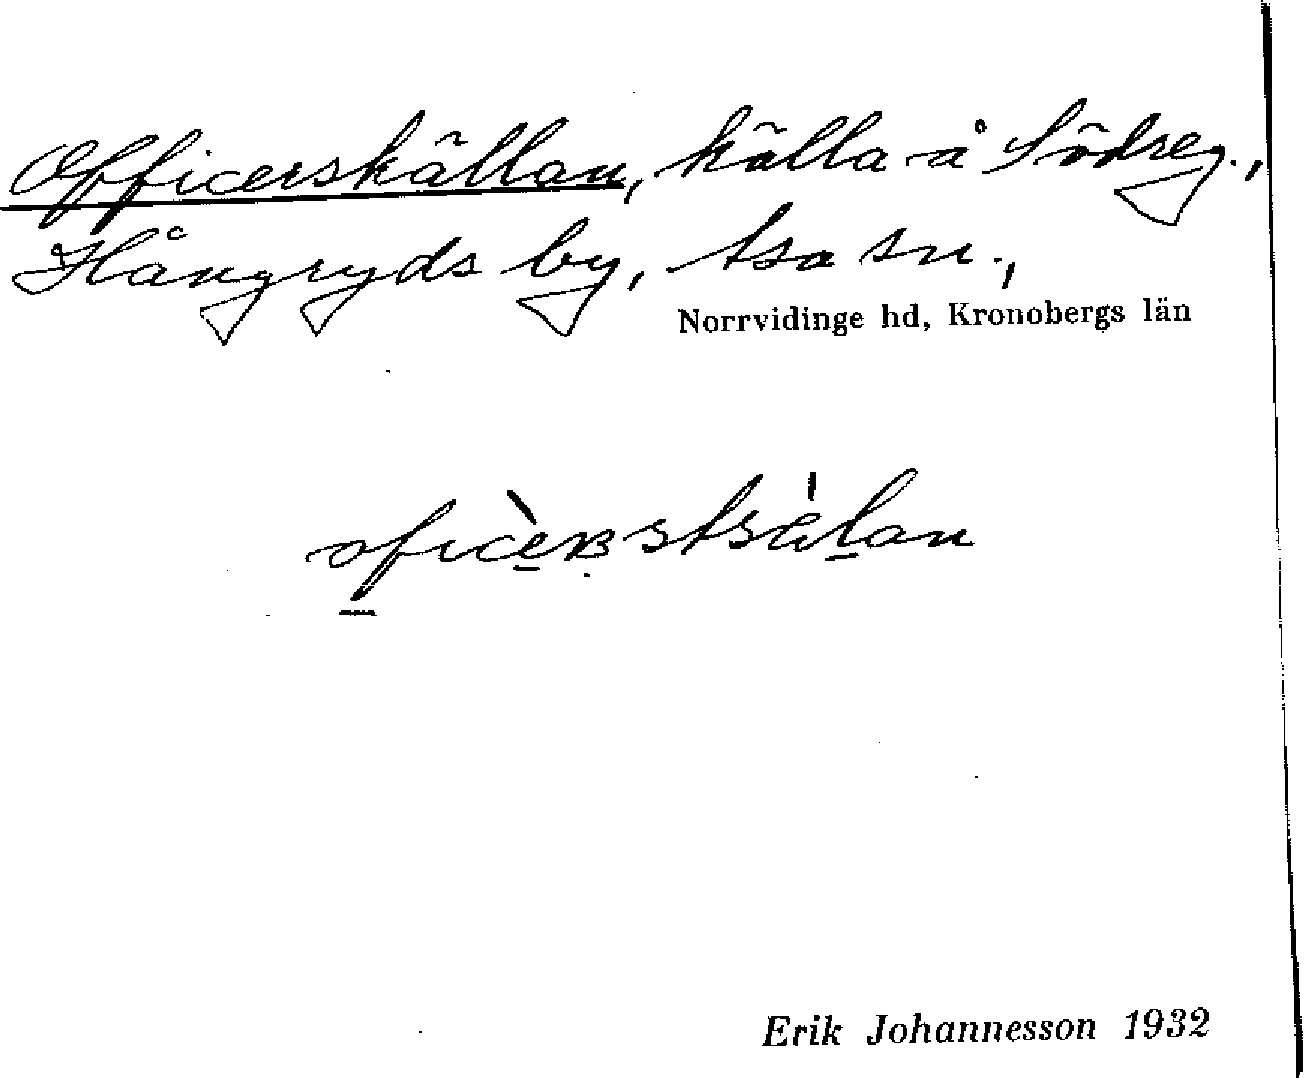 Officerskällan, källa å Södreg.,
Hångryds by, Asa sn.,
Norrvidinge hd, Kronobergs län
Erik Johannesson 1932